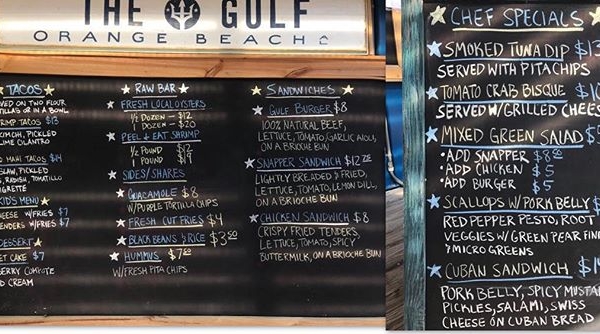 THE GULF
ORANGE BEACH
TACOS
VED ON TWO FLOUR
TILLAS OR IN A BOWL
RIMP TACOS $13
KIMCHI, PICKLED
LIME CILANTRO
O MAHI TACOS $14
SLAW, PICKLED
, RADISH, TOMATILLO
IGRETTE
KIDS MENU
HEESE W/FRIES $7
TENDERS W/FRIES $7
DESSERT
ET CAKE $7
BERRY COMPOTE
D CREAM
RAW BAR
FRESH LOCAL OYSTERS
1/2 DOZEN - $12
DOZEN - $20
PEEL & EAT SHRIMP
1/2 POUND $12
POUND $19
SIDES/SHARES
GUACAMOLE $8
W/PURPLE TORTILLA CHIPS
FRESH CUT FRIES $4
BLACK BEANS & RICE $3.50
HUMMUS $7.50
W/FRESH PITA CHIPS
SANDWICHES
GULF BURGER $8
100% NATURAL BEEF,
LETTUCE, TOMATO, GARLIC AIOLI,
ON A BRIOCHE BUN
SNAPPER SANDWICH $12.75
LIGHTLY BREADED & FRIED,
LETTUCE, TOMATO, LEMON DILL,
ON A BRIOCHE BUN
CHICKEN SANDWICH $8
CRISPY FRIED TENDERS,
LETTUCE, TOMATO, SPICY
BUTTERMILK, ON A BRIOCHE BUN
CHEF SPECIALS
SMOKED TUNA DIP $13
SERVED WITH PITA CHIPS
TOMATO CRAB BISQUE $10
SERVED W/GRILLED CHEES
MIXED GREEN SALAD $5
• ADD SNAPPER $8.50
• ADD CHICKEN $5
• ADD BURGER $5
SCALLOPS W/PORK BELLY $
RED PEPPER PESTO, ROOT
VEGGIES W/GREEN PEAR FIN
& MICRO GREENS
CUBAN SANDWICH $1
PORK BELLY, SPICY MUSTA
PICKLES, SALAMI, SWISS
CHEESE ON CUBAN BREAD